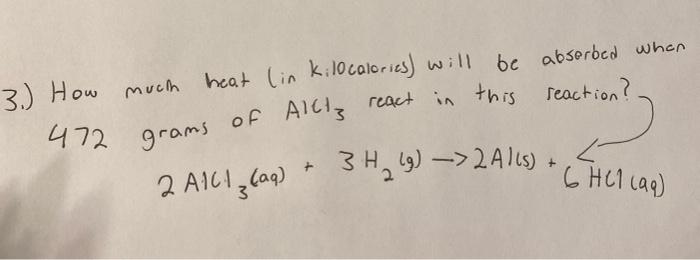 3.) How much heat (in kilocalories) will be absorbed when
472 grams of AlCl3 react in this reaction?
2 AlCl3 (aq) + 3 H2 (g) —> 2 Al(s) + 6 HCl (aq)